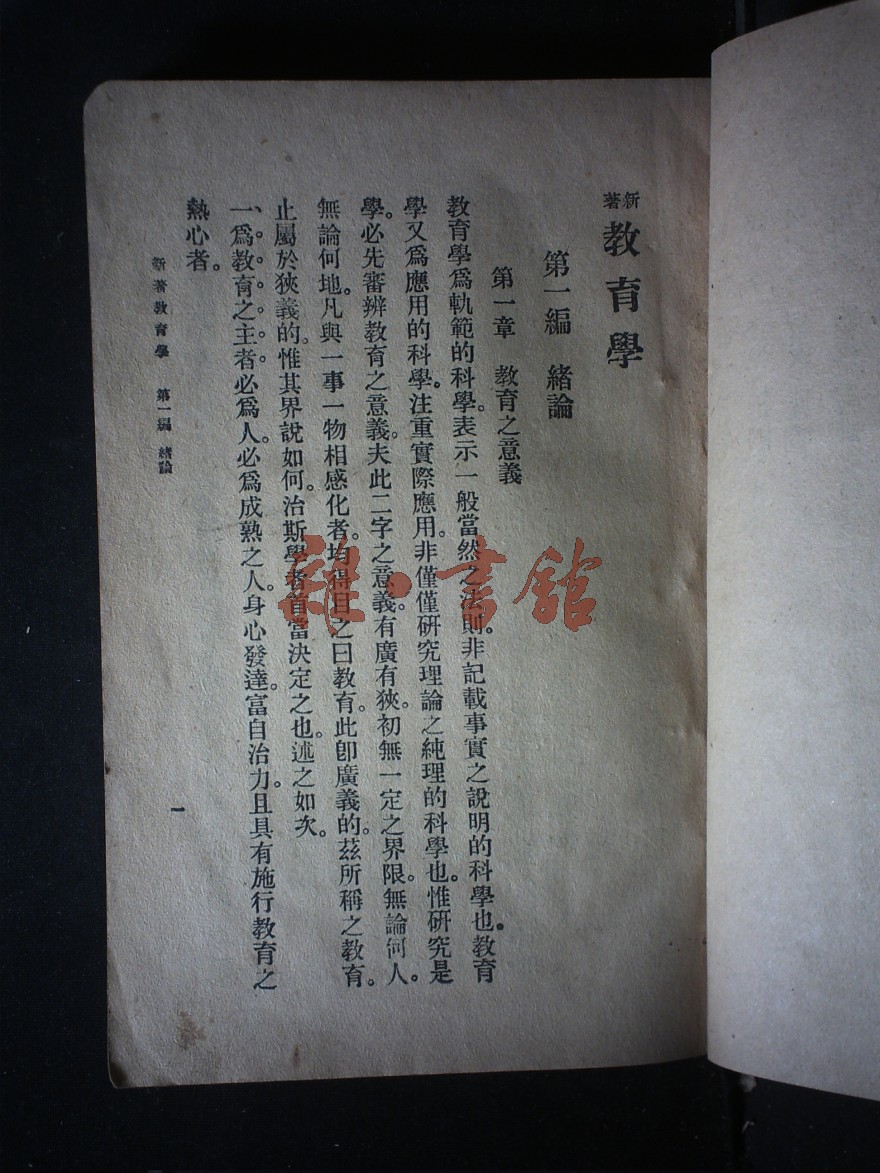 新著 教育學
第一編 緒論
第一章 教育之意義
教育學爲軌範的科學。表示一般當然之法則。非記載事實之說明的科學也。教育
學又爲應用的科學。注重實際應用。非僅僅研究理論之純理的科學也。惟研究是
學。必先審辨教育之意義。夫此二字之意義。有廣有狹。初無一定之界限。無論何人。
無論何地。凡與一事一物相感化者。均得目之曰教育。此卽廣義的。茲所稱之教育。
止屬於狹義的。惟其界說如何。治斯學者首當決定之也。述之如次。
一、爲教育之主者必爲人。必爲成熟之人。身心發達。富自治力。且具有施行教育之
熱心者。
新著教育學 第一編 緒論
一
雜·書館